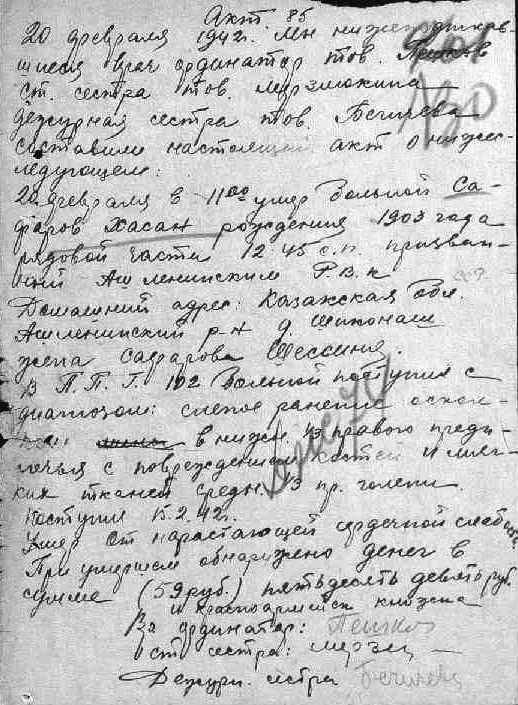 Акт 85
20 февраля 1942г. Мы нижеподписав-
шиеся врач ординатор тов.
ст. сестра тов. Мерзлюкина
дежурная сестра тов. Бечичева
составили настоящий акт о ниже-
следующем:
20 февраля в 11 00 умер больной Са-
фаров Хасан рождения 1903 года
рядовой части 12 45 с.п. призван-
ный Р.В.К
Домашний адрес: Казахская обл.
р-н д.
жена Сафарова
В П.П.Г. 102 больной поступил с
диагнозом: слепое ранение оскол-
в нижн. 1/3 правого пред-
плечья с повреждением костей и мяг-
ких тканей средн. 1/3 пр. голени.
Поступил 15.2.42г.
Умер от нарастающей сердечной слабости
При умершем обнаружено денег в
сумме (59 руб.) пятьдесят девять руб.
и красноармейск книжка
Вр ординатор:
ст сестра: Мерзл
Дежурн. сестра Бечичева